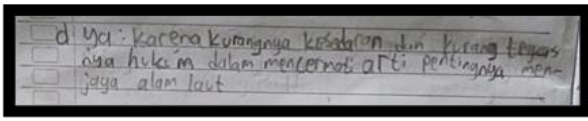 d ya : karena kurangnya kesadaran dan kurang tegas
nya hukum dalam mencermati arti pentingnya men-
jaga alam laut